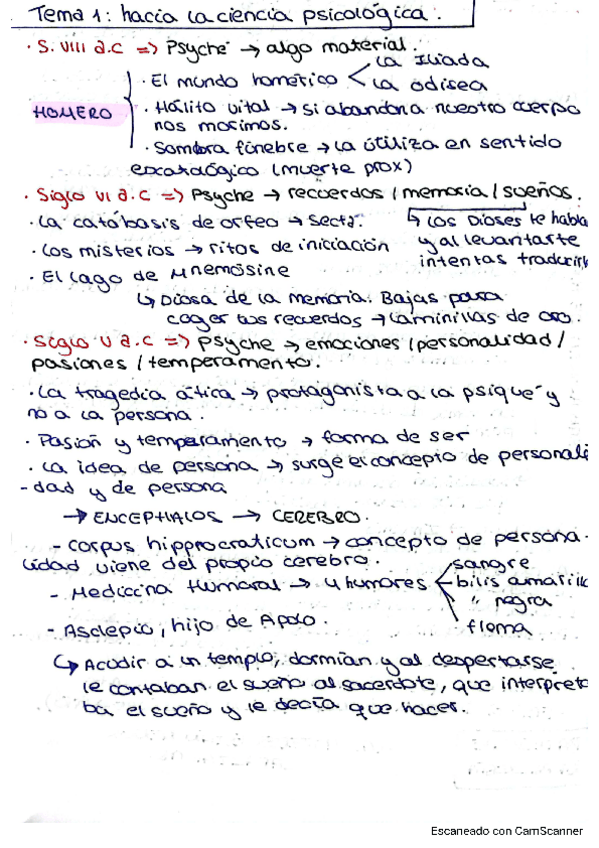 Tema 1: hacia la ciencia psicológica.
· S. VIII a.C => Psyché → algo material.
HOMERO
· El mundo homérico < La Iliada
La odisea
· Hálito vital → si abandona nuestro cuerpo
nos morimos.
· Sombra fúnebre → la utiliza en sentido
escatológico (muerte prox)
· Siglo VI a.C => Psyche → recuerdos / memoria / sueños.
· La catábasis de orfeo → secta.
↳ Los Dioses te habla
· Los misterios → ritos de iniciación
y al levantarte
intentas traducirl
· El Lago de Mnemósine
↳ Diosa de la memoria. Bajas para
coger tus recuerdos → Laminillas de oro.
· Siglo V a.C => psyche → emociones / personalidad /
pasiones / temperamento.
· La tragedia ática → protagonista a la psique y
no a la persona.
· Pasión y temperamento → forma de ser
· La idea de persona → surge el concepto de personali
-dad y de persona
→ ENCEPHALOS → CEREBRO.
- Corpus hippocraticum → concepto de persona-
lidad viene del propio cerebro.
- Medicina Humoral → 4 humores < sangre
bilis amarilla
" negra
flema
- Asclepio, hijo de Apolo.
↳ Acudir a un templo, dormían y al despertarse
le contaban el sueño al sacerdote, que interpreta
ba el sueño y le decía que hacer.
Escaneado con CamScanner